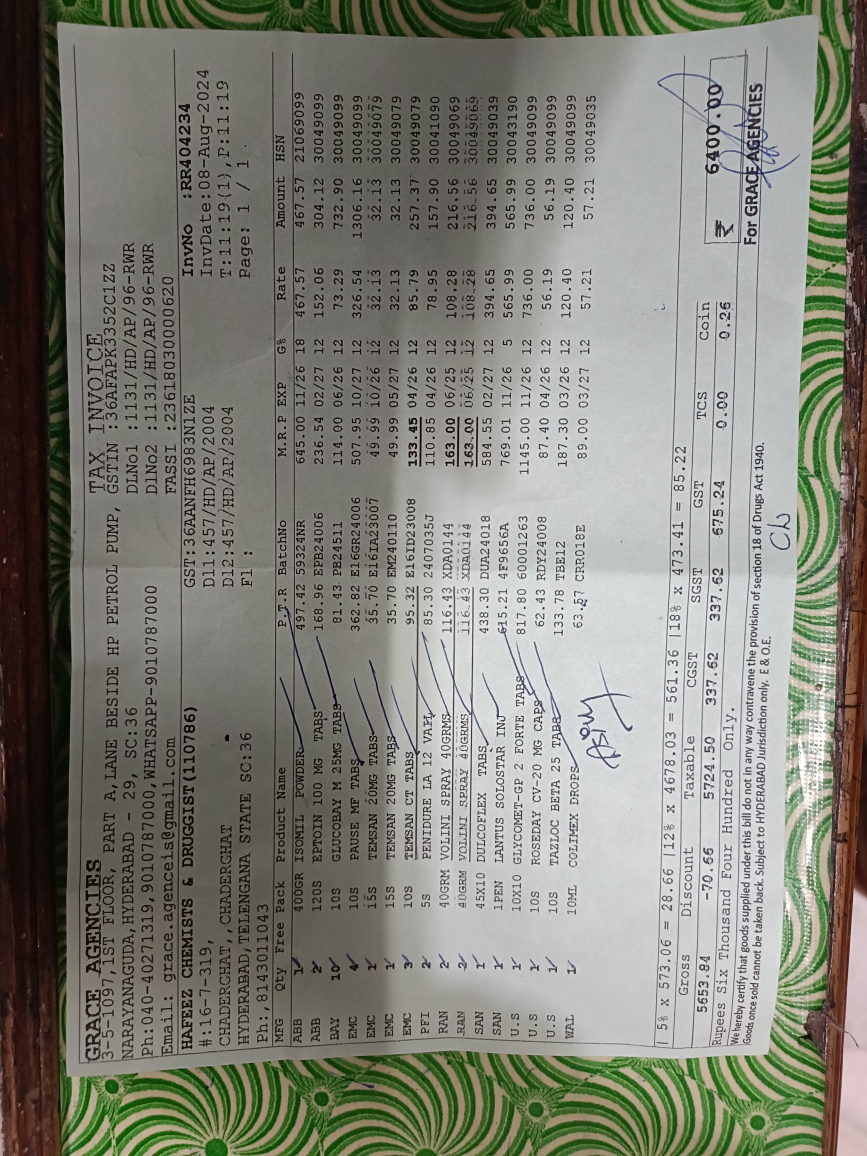 GRACE AGENCIES
3-5-1097, 1ST FLOOR, PART A, LANE BESIDE HP PETROL PUMP,
NARAYANAGUDA, HYDERABAD - 29, SC:36
Ph:040-40271319,9010787000,WHATSAPP-9010787000
Email: grace.agenceis@gmail.com
TAX INVOICE
GSTIN :36AFAPK3352C1ZZ
DLNo1 :1131/HD/AP/96-RWR
DlNo2 :1131/HD/AP/96-RWR
FASSI :23618030000620
HAFEEZ CHEMISTS & DRUGGIST(110786)
#:16-7-319,
CHADERGHAT,,CHADERGHAT
HYDERABAD,TELENGANA STATE SC:36
Ph:,8143011043
GST:36AANFH6983N1ZE
D11:457/HD/AP/2004
D12:457/HD/AP/2004
Fl :
InvNo :RR404234
InvDate:08-Aug-2024
T:11:19(1),P:11:19
Page: 1 / 1
MFG Qty Free Pack Product Name P.T.R BatchNo M.R.P EXP G% Rate Amount HSN
ABB 1 400GR ISOMIL POWDER 497.42 59324NR 645.00 11/26 18 467.57 467.57 21069099
ABB 2 120S EPTOIN 100 MG TABS 168.96 EPB24006 236.54 02/27 12 152.06 304.12 30049099
BAY 10 10S GLUCOBAY M 25MG TABS 81.43 PB24511 114.00 06/26 12 73.29 732.90 30049099
EMC 4 10S PAUSE MF TABS 362.82 E16GR24006 507.95 10/27 12 326.54 1306.16 30049099
EMC 1 15S TEMSAN 20MG TABS 35.70 E16IA23007 49.99 10/26 12 32.13 32.13 30049079
EMC 1 15S TEMSAN 20MG TABS 35.70 EM240110 49.99 05/27 12 32.13 32.13 30049079
EMC 3 10S TEMSAN CT TABS 95.32 E16ID23008 133.45 04/26 12 85.79 257.37 30049079
PFI 2 5S PENIDURE LA 12 VAIL 85.30 2407035J 110.85 04/26 12 78.95 157.90 30041090
RAN 2 40GRM VOLINI SPRAY 40GRMS 116.43 XDA0144 163.00 06/25 12 108.28 216.56 30049069
RAN 2 40GRM VOLINI SPRAY 40GRMS 116.43 XDA0144 163.00 06/25 12 108.28 216.56 30049069
SAN 1 45X10 DULCOFLEX TABS 438.30 DUA24018 584.55 02/27 12 394.65 394.65 30049039
SAN 1 1PEN LANTUS SOLOSTAR INJ 615.21 4F9656A 769.01 11/26 5 565.99 565.99 30043190
U.S 1 10X10 GLYCOMET-GP 2 FORTE TABS 817.80 60001263 1145.00 11/26 12 736.00 736.00 30049099
U.S 1 10S ROSEDAY CV-20 MG CAPS 62.43 RDY24008 87.40 04/26 12 56.19 56.19 30049099
U.S 1 10S TAZLOC BETA 25 TABS 133.78 TBE12 187.30 03/26 12 120.40 120.40 30049099
WAL 1 10ML COLIMEX DROPS 63.57 CRR018E 89.00 03/27 12 57.21 57.21 30049035
| 5% x 573.06 = 28.66 |12% x 4678.03 = 561.36 |18% x 473.41 = 85.22
Gross Discount Taxable CGST SGST GST TCS Coin
5653.84 -70.66 5724.50 337.62 337.62 675.24 0.00 0.26
₹ 6400.00
Rupees Six Thousand Four Hundred Only.
We hereby certify that goods supplied under this bill do not in any way contravene the provision of section 18 of Drugs Act 1940.
Goods once sold cannot be taken back. Subject to HYDERABAD Jurisdiction only. E & O.E.
For GRACE AGENCIES